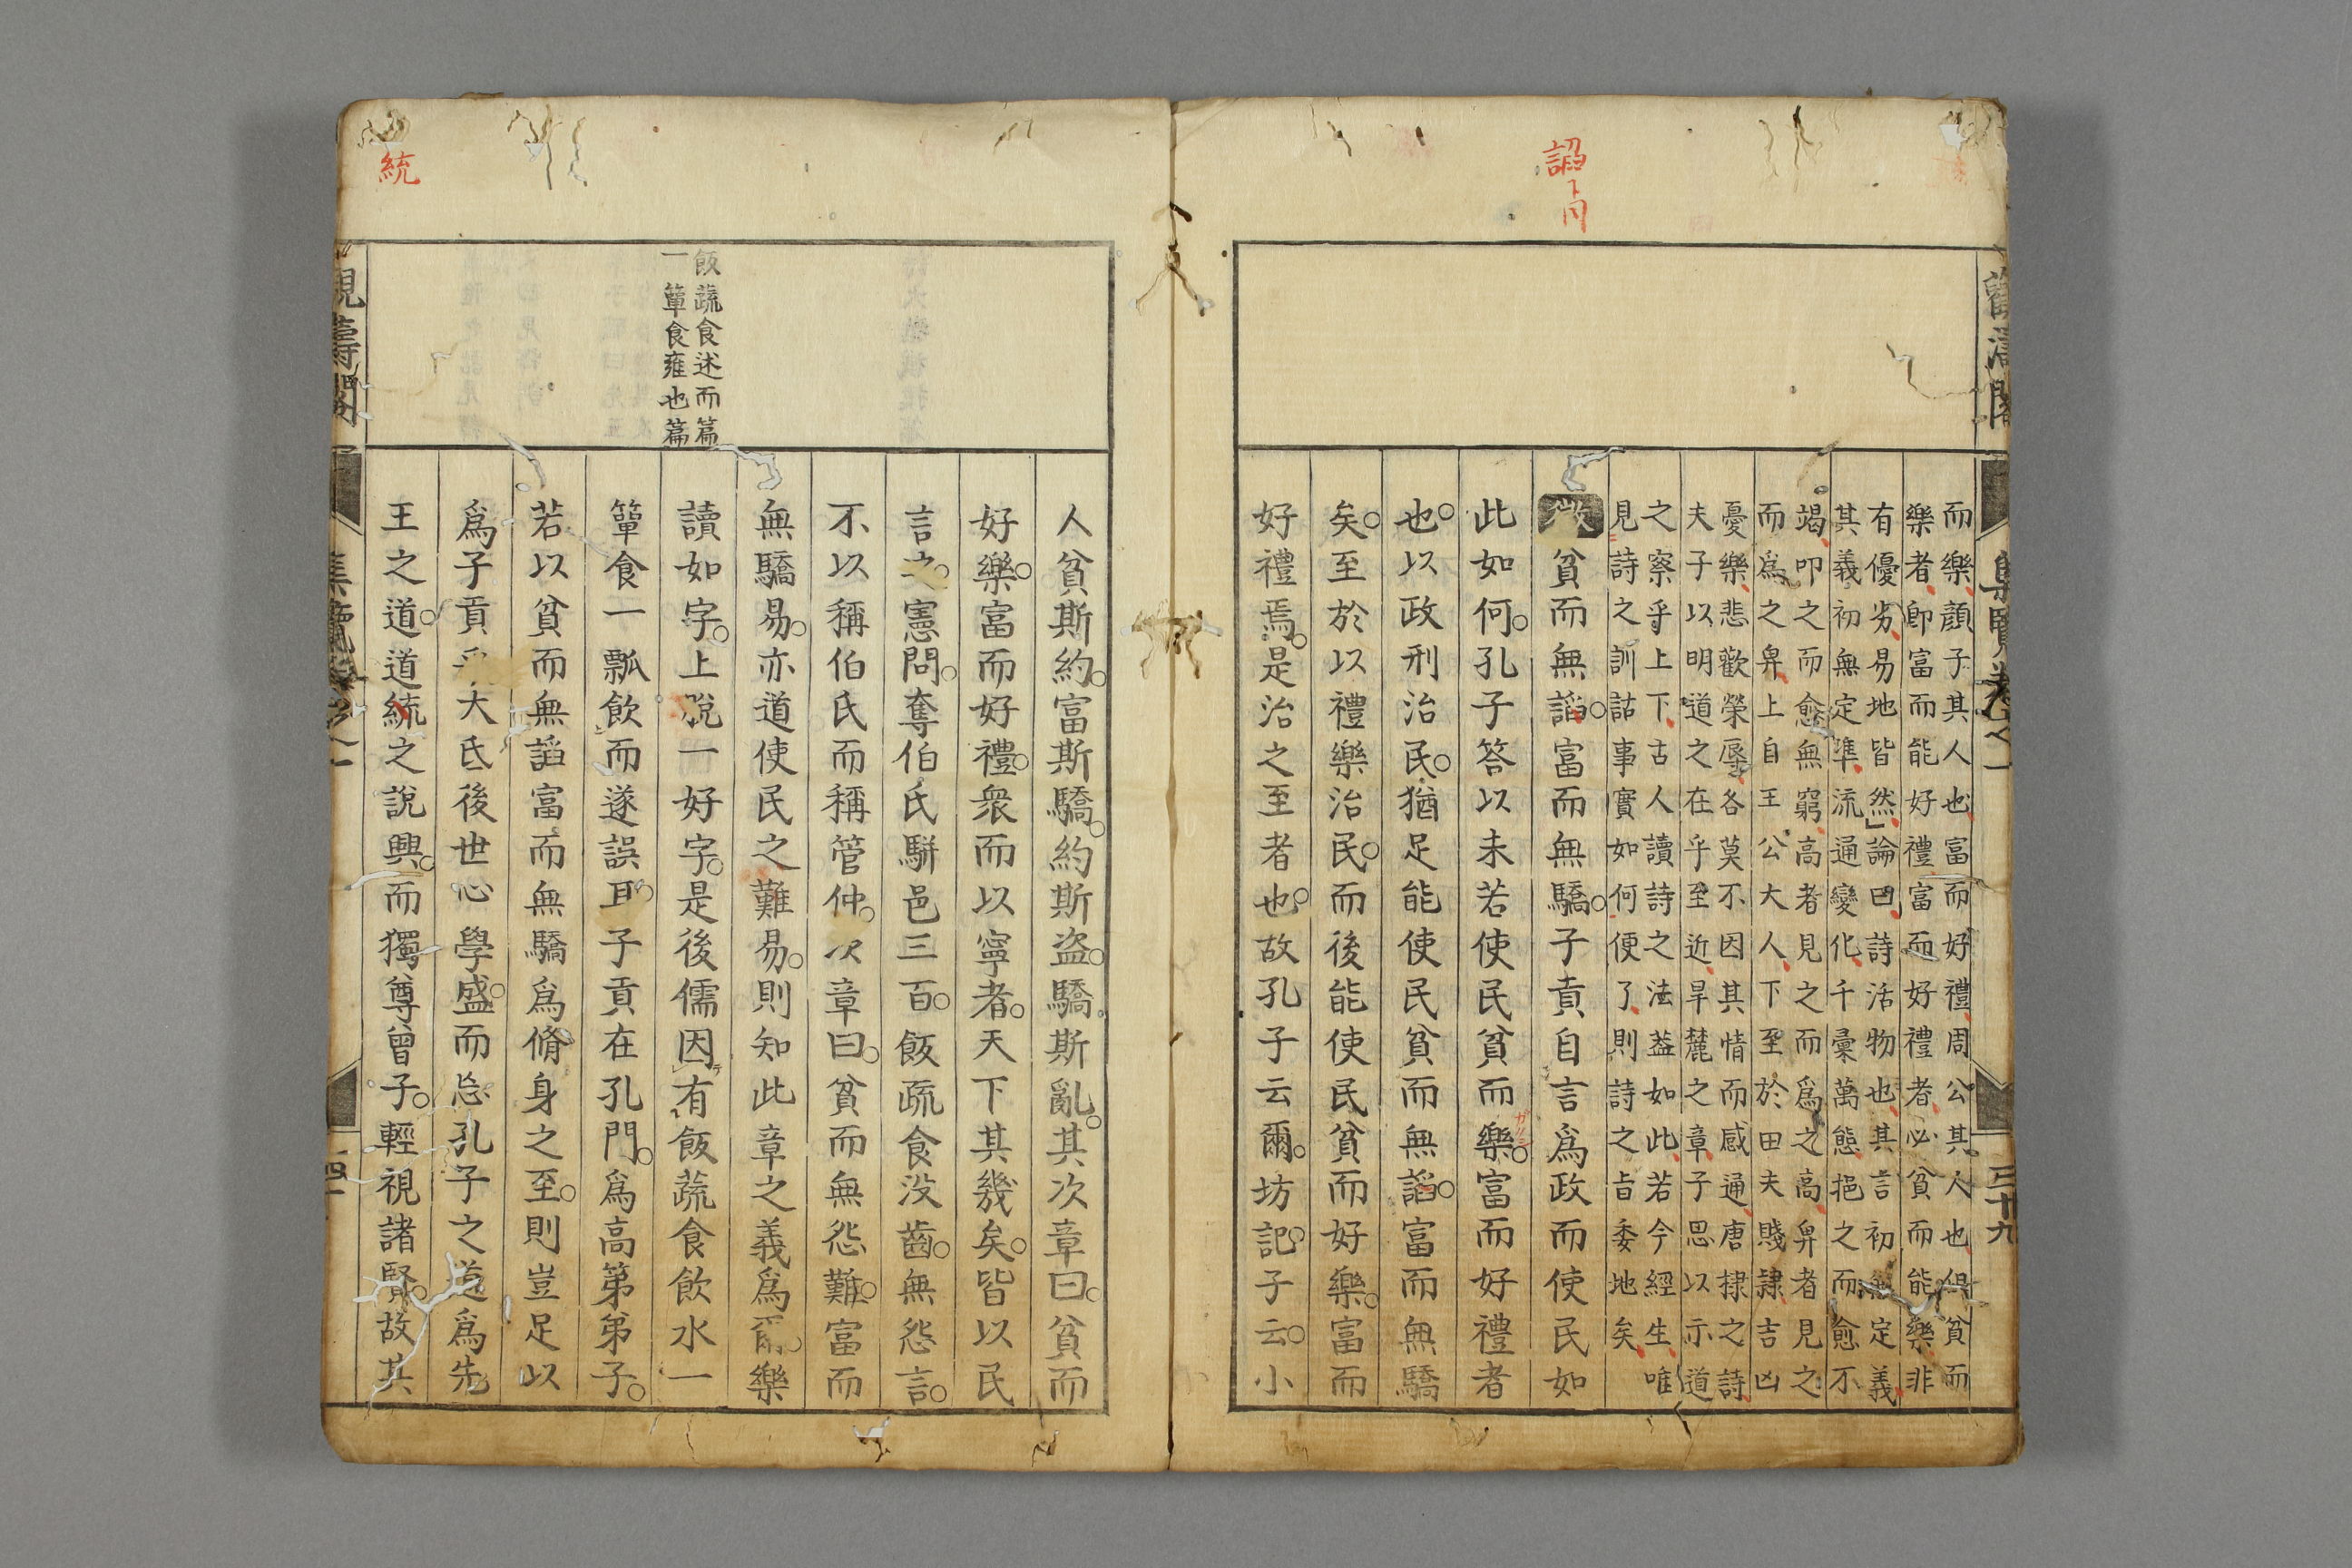 謟下同
而樂顔子其人也富而好禮周公其人也但貧而
樂者卽富而能好禮富而好禮者必貧而能樂非
有優劣易地皆然論曰詩活物也其言初無定義
其義初無定準流通變化千彙萬態挹之而愈不
竭叩之而愈無窮高者見之而爲之高卑者見之
而爲之卑上自王公大人下至於田夫賤隷吉凶
憂樂悲歡榮辱各莫不因其情而感通唐棣之詩
夫子以明道之在乎至近旱麓之章子思以示道
之察乎上下古人讀詩之法葢如此若今經生唯
見詩之訓詁事實如何便了則詩之旨委地矣
徴貧而無謟富而無驕子貢自言爲政而使民如
此如何孔子答以未若使民貧而樂富而好禮者
也以政刑治民猶足能使民貧而無謟富而無驕
矣至於以禮樂治民而後能使民貧而好樂富而
好禮焉是治之至者也故孔子云爾坊記子云小
觀濤閣
集覽卷之一
三十九
飯蔬食述而篇
一簞食雍也篇
人貧斯約富斯驕約斯盜驕斯亂其次章曰貧而
好樂富而好禮衆而以寧者天下其幾矣皆以民
言之憲問奪伯氏駢邑三百飯疏食没齒無怨言
不以稱伯氏而稱管仲次章曰貧而無怨難富而
無驕易亦道使民之難易則知此章之義爲爾樂
讀如字上脱一好字是後儒因有飯蔬食飲水一
簞食一瓢飲而遂誤耳子貢在孔門爲高第弟子
若以貧而無謟富而無驕爲脩身之至則豈足以
爲子貢乎大氐後世心學盛而忘孔子之道爲先
王之道道統之說興而獨尊曾子輕視諸賢故其
統